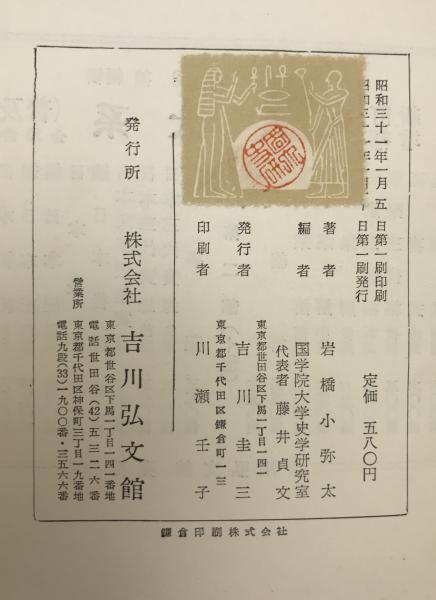 昭和三十一年一月五日第一刷印刷
日第一刷発行
定価 五八〇円
著者 岩橋小弥太
編者 国学院大学史学研究室
代表者 藤井貞文
東京都世田谷区下馬一丁目一四一
発行者 吉川圭三
東京都千代田区鎌倉町一三
印刷者 川瀬壬子
発行所 株式会社 吉川弘文館
東京都世谷区下馬一丁目一四一番地
電話世田谷(42)五三二六番
営業所 東京都千代田区神保町三丁目一九番地
電話九段(33)一九〇〇番・三五六六番
鎌倉印刷株式会社